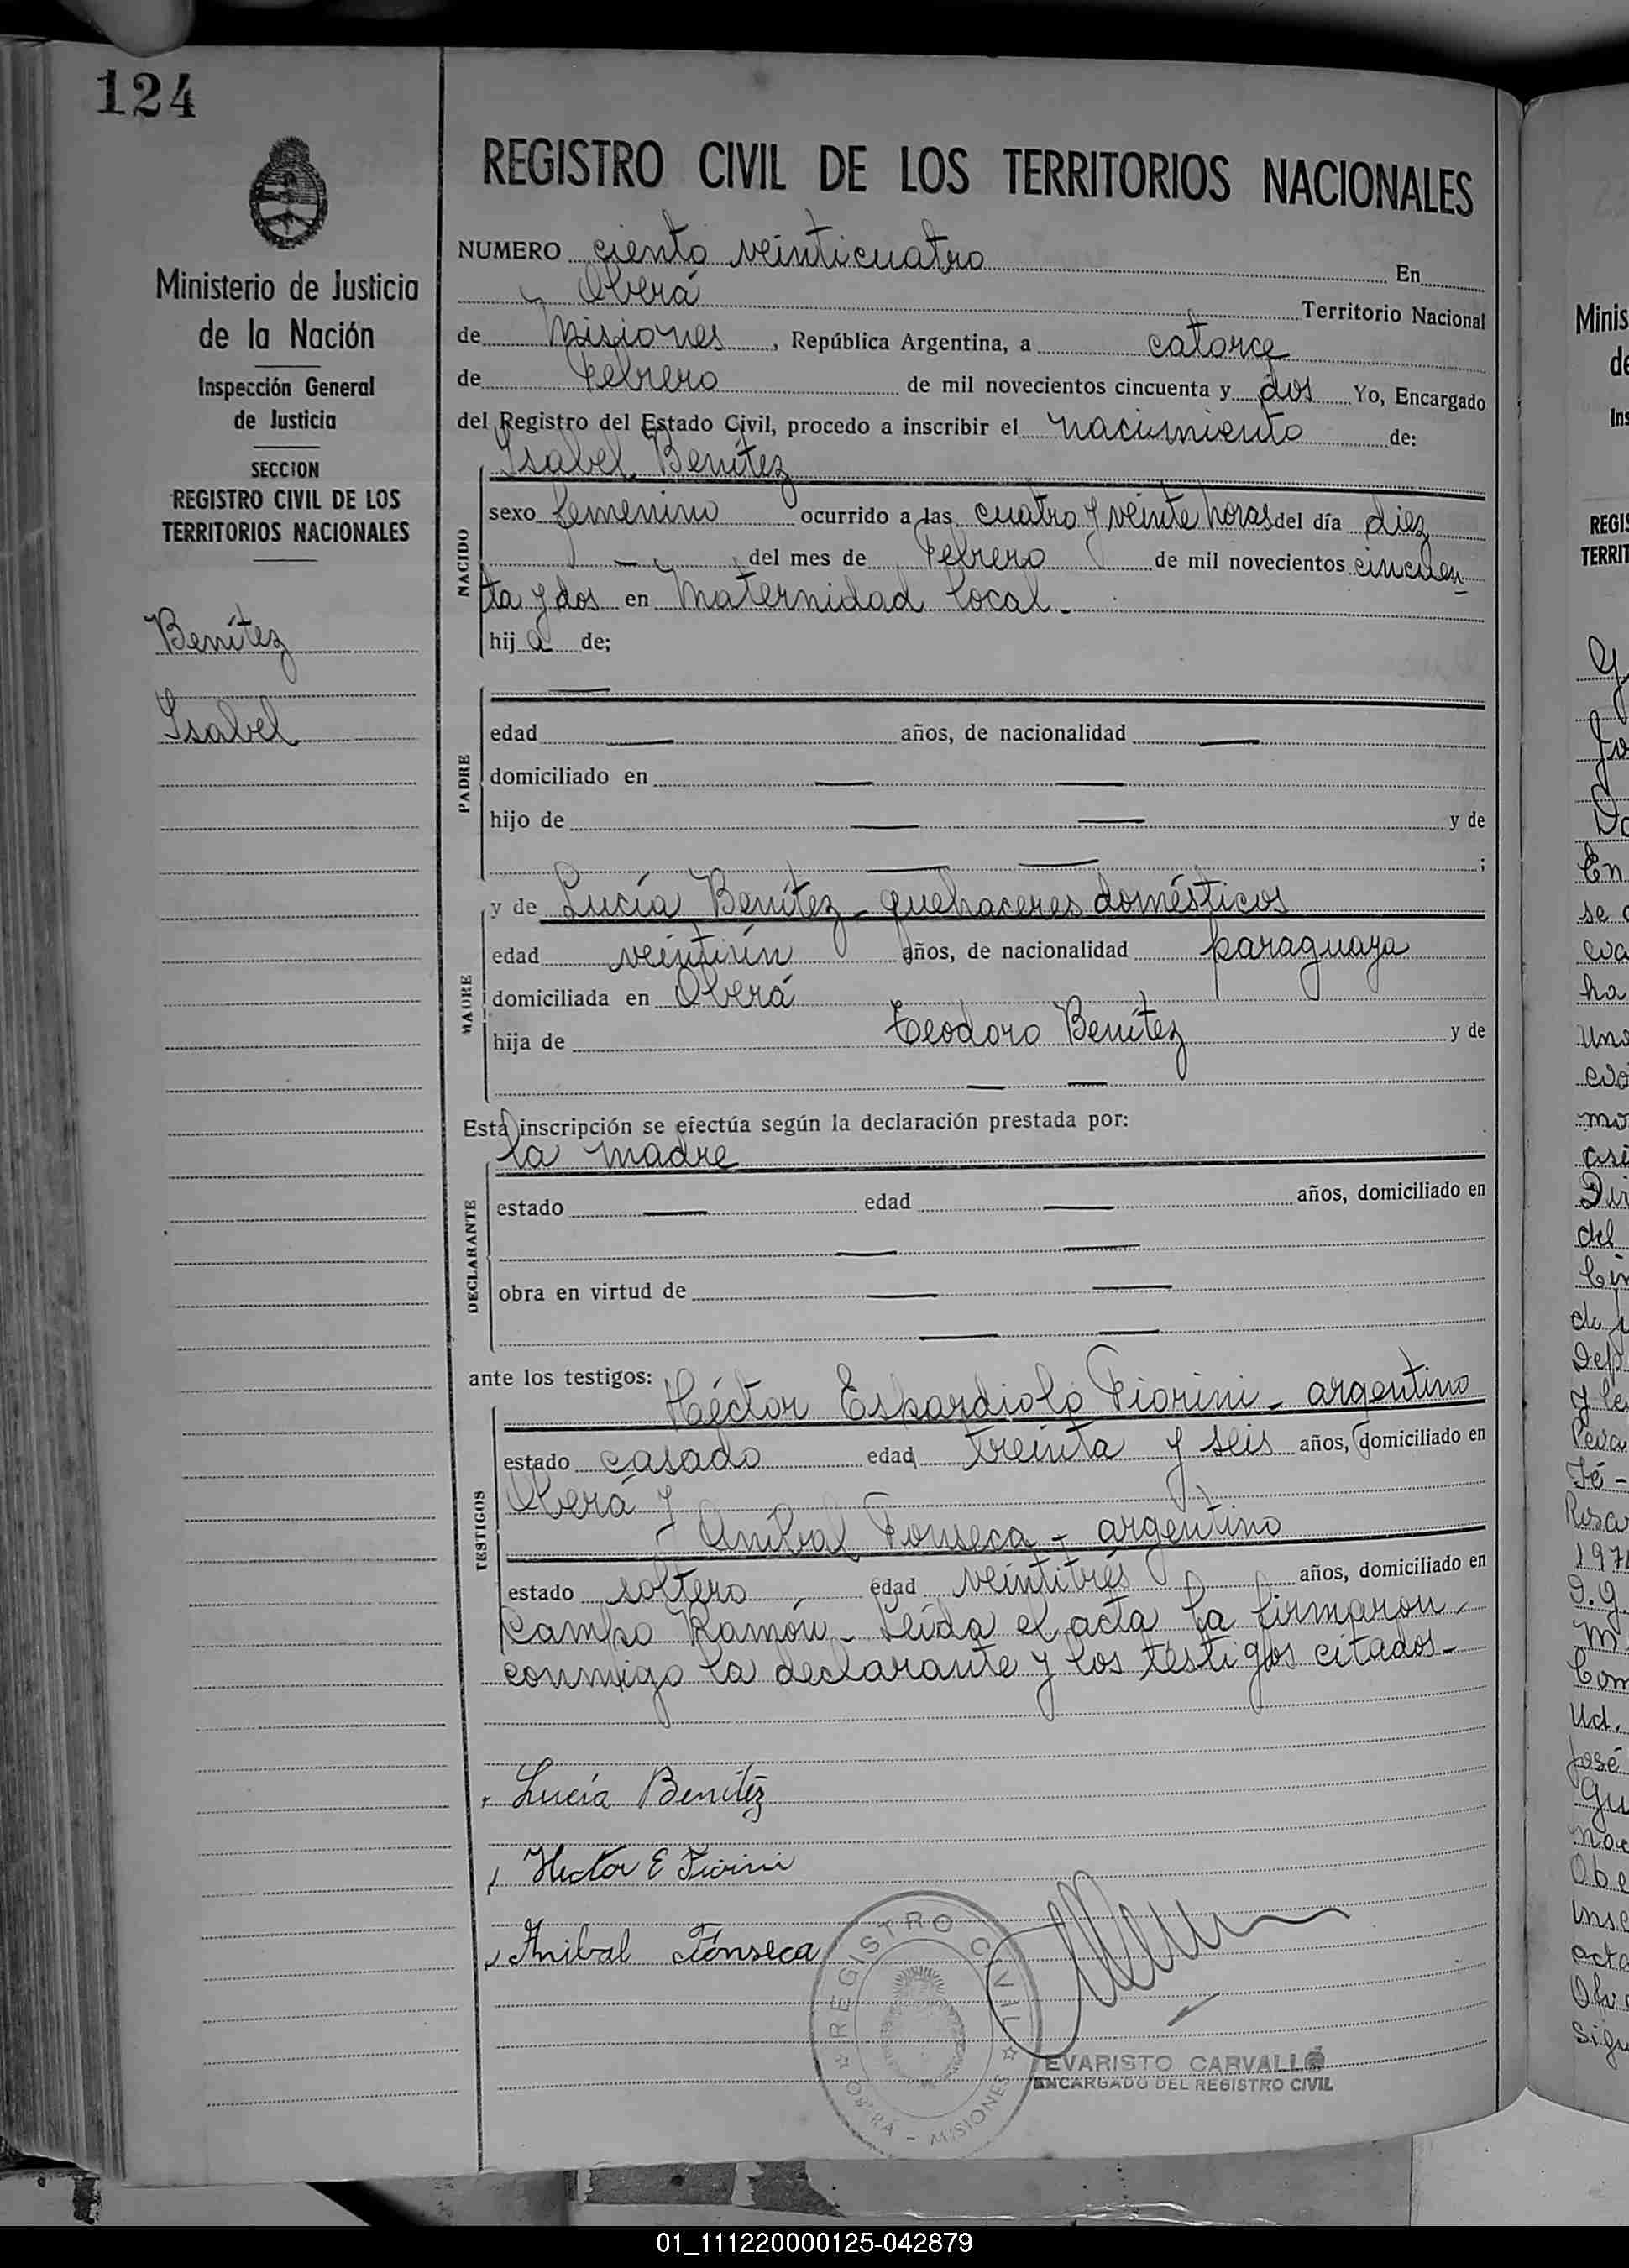 124
Ministerio de Justicia
de la Nación
Inspección General
de Justicia
SECCION
REGISTRO CIVIL DE LOS
TERRITORIOS NACIONALES
Benítez
Isabel
REGISTRO CIVIL DE LOS TERRITORIOS NACIONALES
NUMERO ciento veinticuatro En
Oberá Territorio Nacional
de Misiones, República Argentina, a catorce
de Febrero de mil novecientos cincuenta y dos Yo, Encargado
del Registro del Estado Civil, procedo a inscribir el nacimiento de:
Isabel Benítez
NACIDO
sexo femenino ocurrido a las cuatro y veinte horas del día diez
— del mes de Febrero de mil novecientos cincuen-
ta y dos en Maternidad local-
hij a de;
—
PADRE
edad — años, de nacionalidad —
domiciliado en — —
hijo de — — y de
— — ;
MADRE
y de Lucía Benítez - quehaceres domésticos
edad veintiún años, de nacionalidad paraguaya
domiciliada en Oberá
hija de Teodoro Benítez y de
— —
Esta inscripción se efectúa según la declaración prestada por:
la madre
DECLARANTE
estado — edad — años, domiciliado en
— —
obra en virtud de — —
— —
ante los testigos:
TESTIGOS
Héctor Espardiolo Fiorini - argentino
estado casado edad treinta y seis años, domiciliado en
Oberá y
Aníbal Fonseca - argentino
estado soltero edad veintitrés años, domiciliado en
Campo Ramón - Leída el acta la firmaron
conmigo la declarante y los testigos citados-
Lucía Benítez
Hector E Fiorini
Anibal Fonseca
REGISTRO CIVIL
OBERÁ - MISIONES
EVARISTO CARVALLO
ENCARGADO DEL REGISTRO CIVIL
Minis
de
Ins
REGIS
TERRIT
En
se
ha
del
y le
Fé -
Ud.
José
acta
01_111220000125-042879